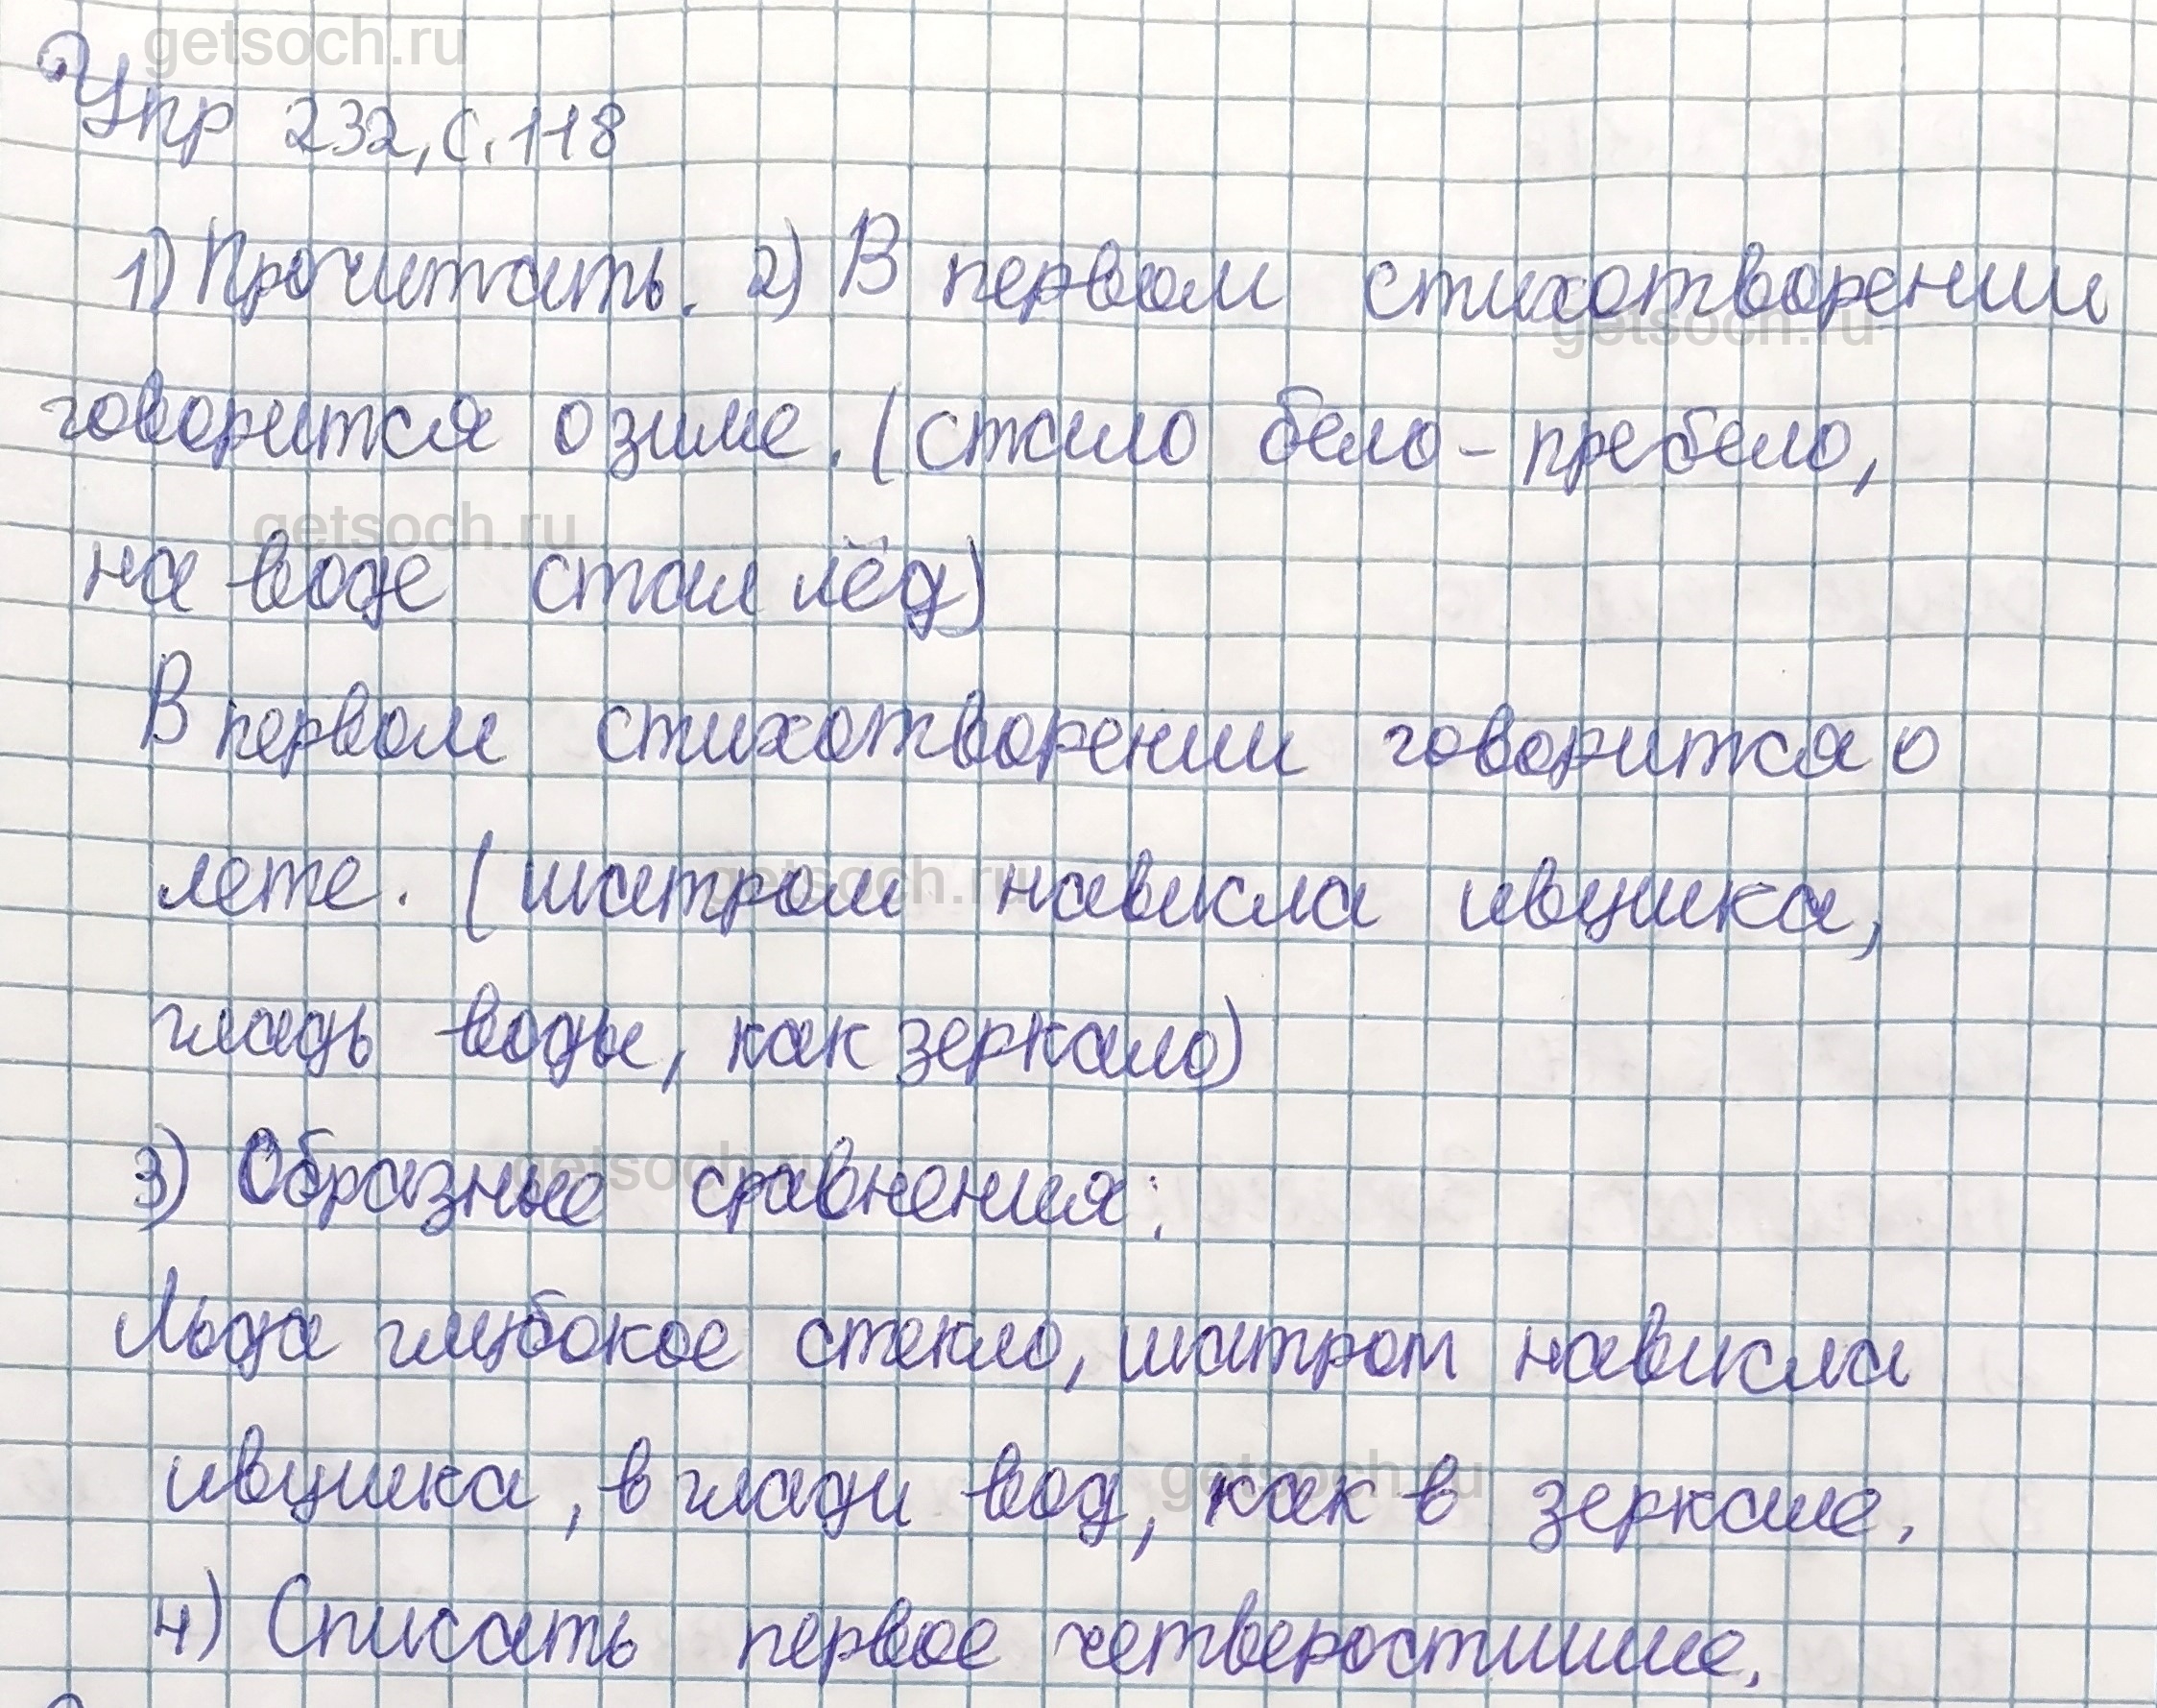 getsoch.ru
Упр 232, с. 118
1) Прочитать. 2) В первом стихотворении
getsoch.ru
говорится о зиме. (стало бело-пребело,
getsoch.ru
на воде стал лёд)
В первом стихотворении говорится о
лете. (шатром нависла ивушка,
getsoch.ru
гладь воды, как зеркало)
3) Образные сравнения:
getsoch.ru
Льда глубокое стекло, шатром нависла
ивушка, в глади вод, как в зеркале.
getsoch.ru
4) Списать первое четверостишие.